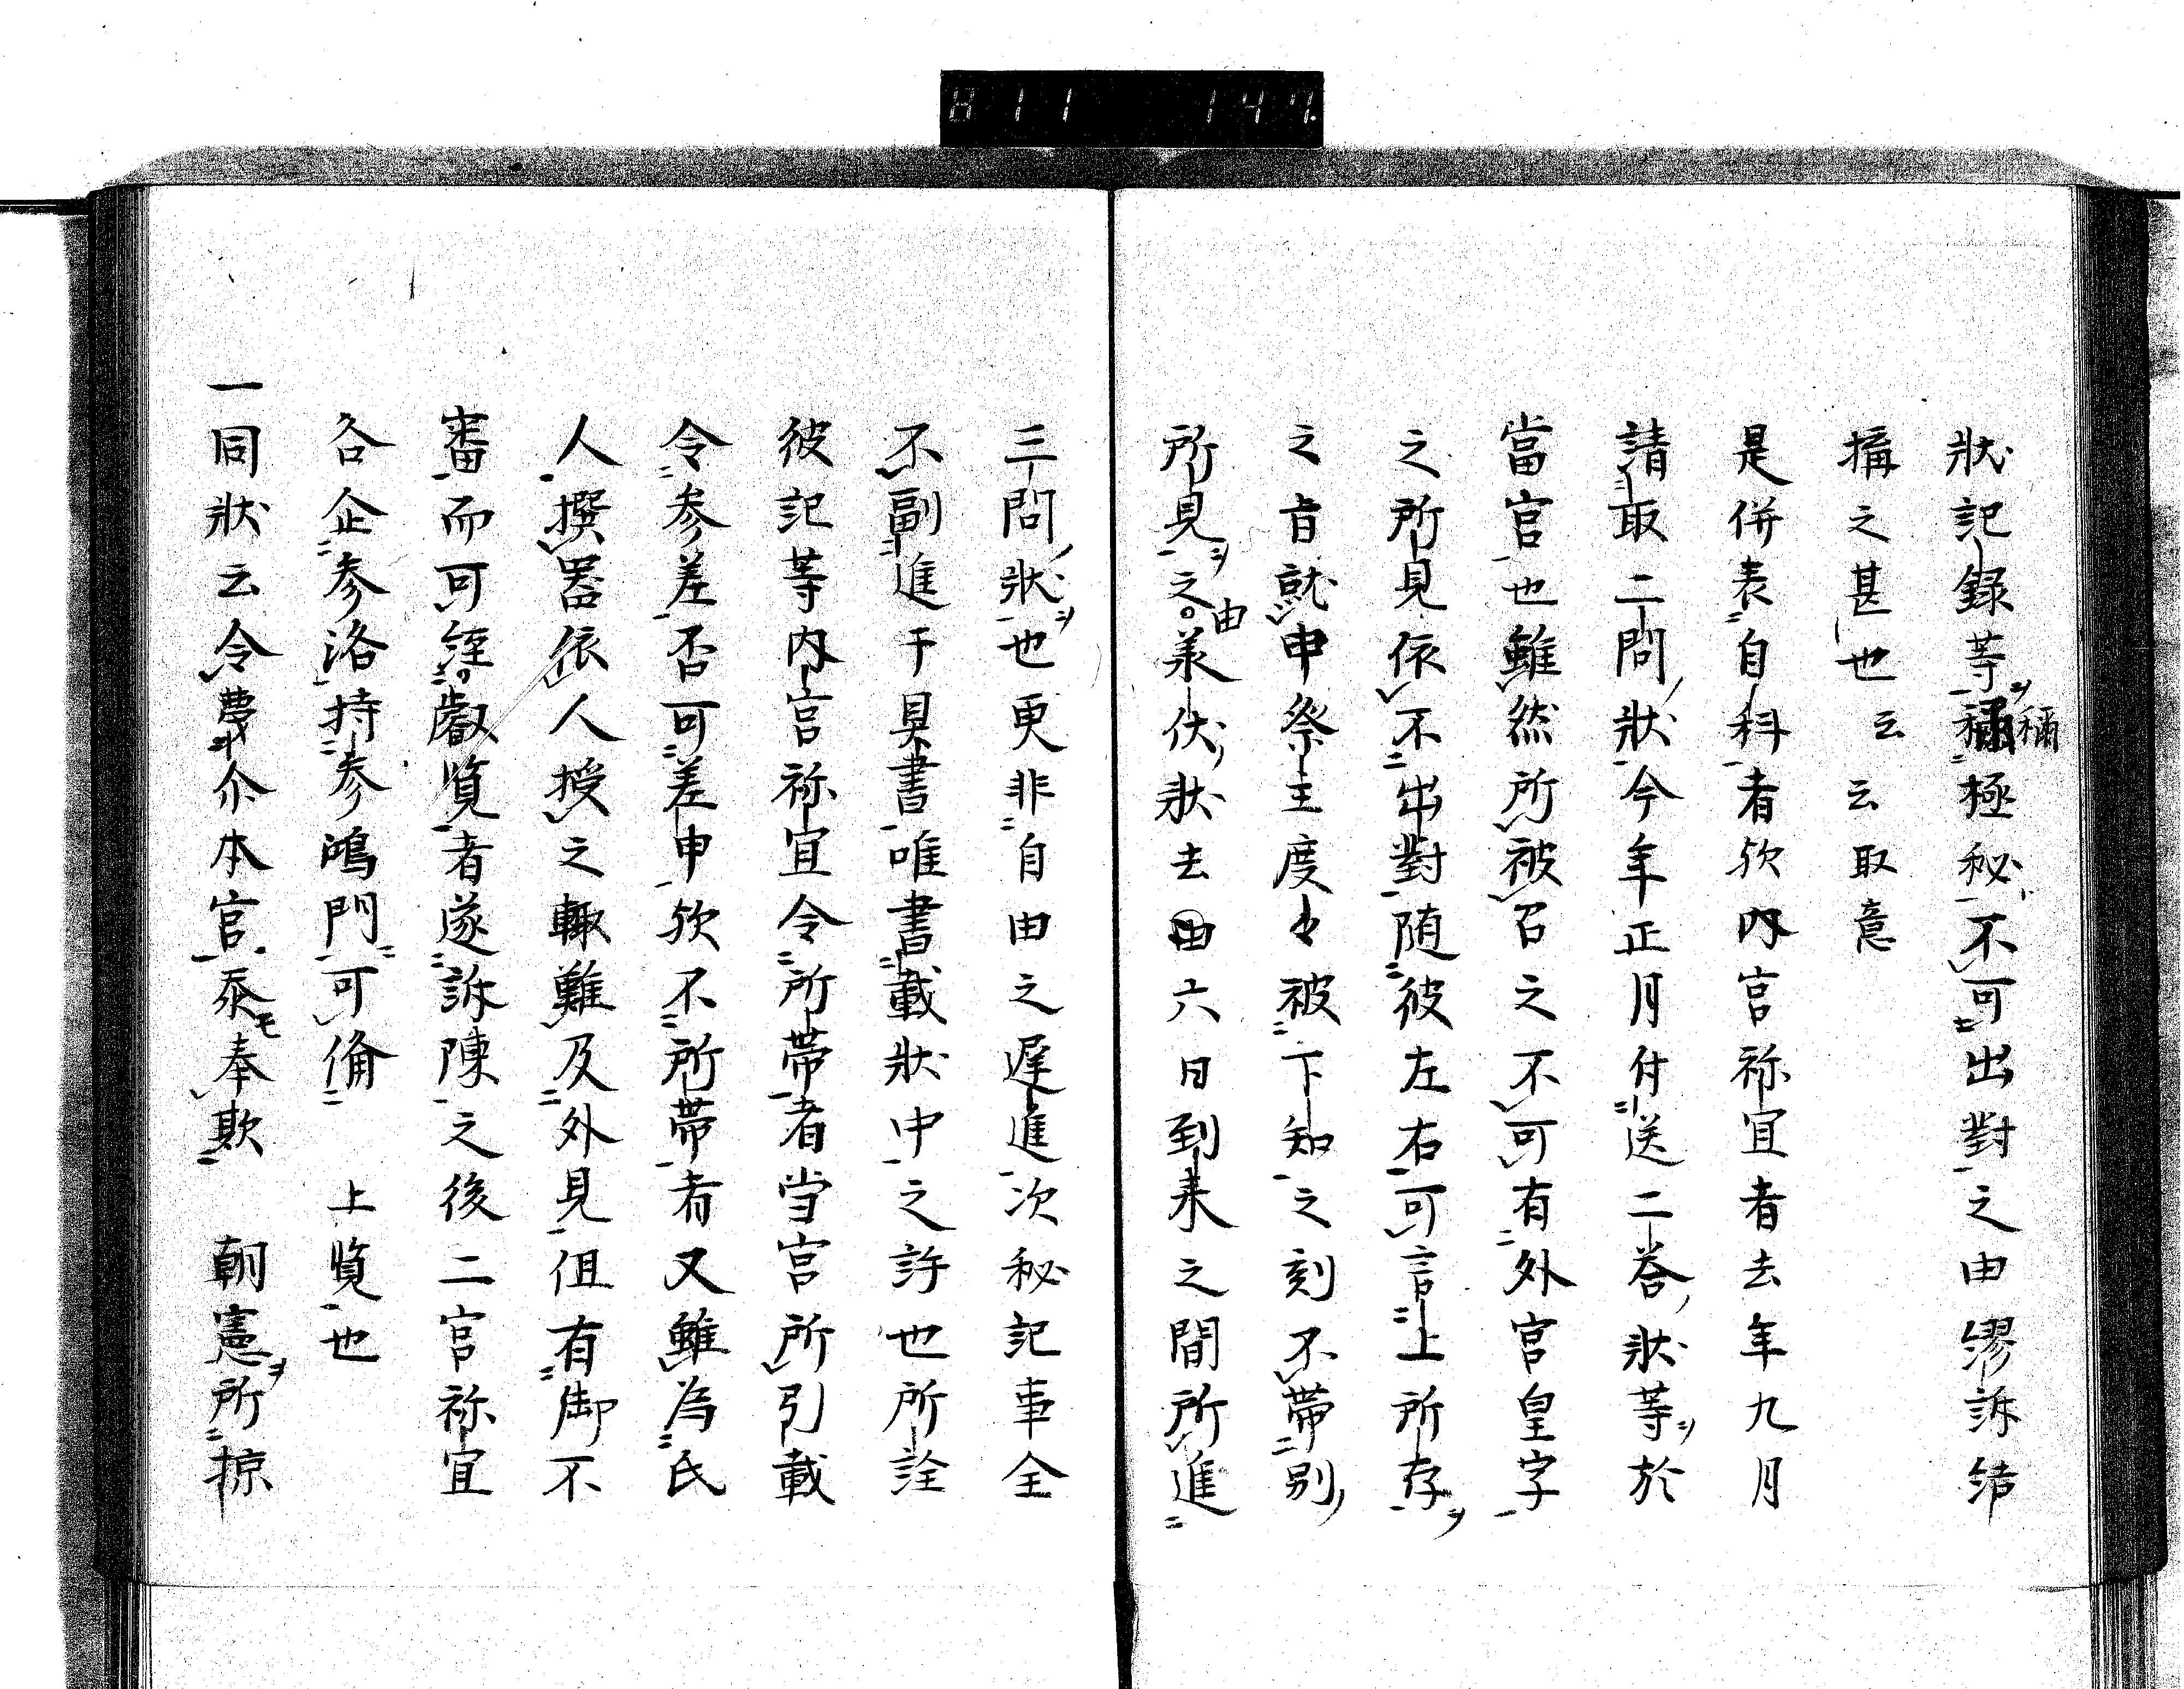 狀記録等稱極秘不可出對之由繆訴結
構之甚也云云取意
是併表自科者欤内宮祢宜者去年九月
請取二問狀今年正月付送二答狀等於
當宮也雖然所被召之不可有外宮皇字
之所見依不出對随彼左右可言上所存
之旨就申祭主度々被下知之刻不帶別
所見之由羕伏狀去六日到来之間所進
三問狀也更非自由之遅進次秘記事全
不副進于具書唯書載狀中之許也所詮
彼記等内宮祢宜令所帶者当宮所引載
令参差否可差申欤不所帶者又雖為氏
人撰器依人授之輙難及外見但有御不
審而可経叡覧者遂訴陳之後二宮祢宜
各企参洛持参鴻門可備 上覧也
一同狀云令蔑尓本宮忝奉欺 朝憲所掠
稱
由
B11 147